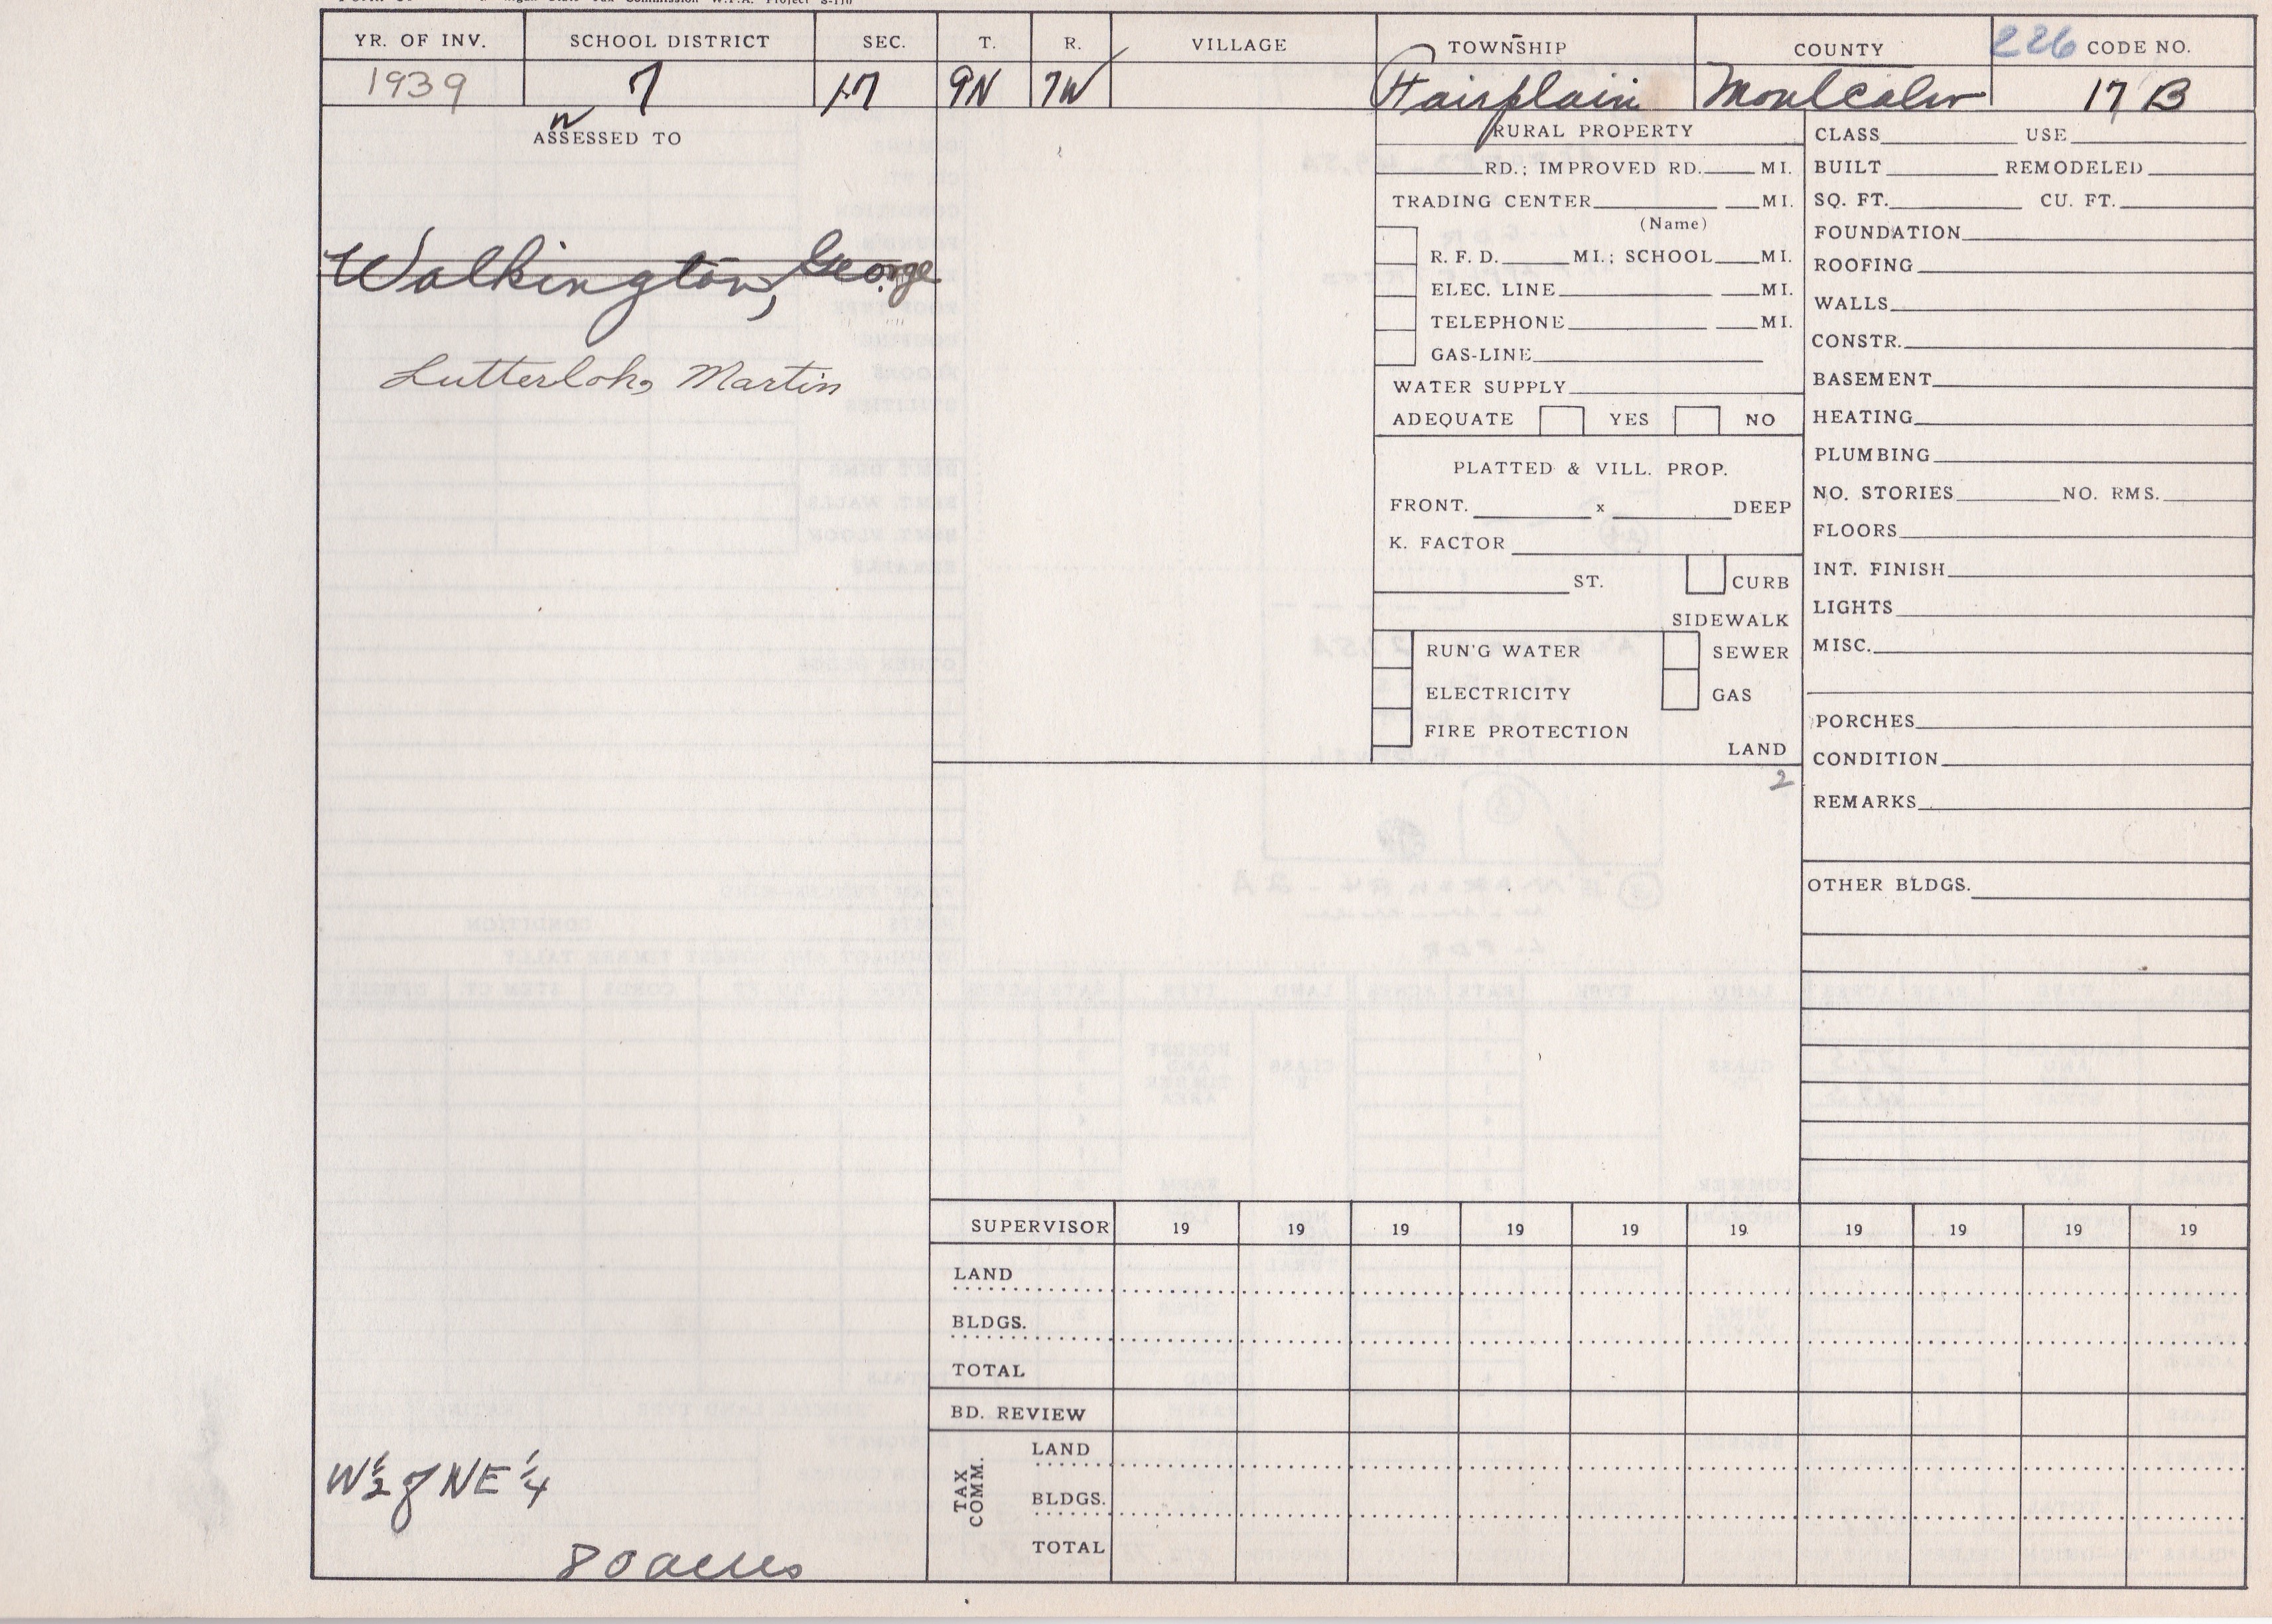 Tax Commission W.P.A. Project S-170
YR. OF INV. SCHOOL DISTRICT SEC. T. R. VILLAGE TOWNSHIP COUNTY 226 CODE NO.
1939 7 17 9N 7W Fairplain Montcalm 17 B
ASSESSED TO
Walkington, George
Lutterloh, Martin
W 1/2 of NE 1/4
80 acres
RURAL PROPERTY
RD.; IMPROVED RD. MI.
TRADING CENTER MI.
(Name)
R. F. D. MI.; SCHOOL MI.
ELEC. LINE MI.
TELEPHONE MI.
GAS-LINE
WATER SUPPLY
ADEQUATE YES NO
PLATTED & VILL. PROP.
FRONT. x DEEP
K. FACTOR
ST. CURB
SIDEWALK
RUN'G WATER SEWER
ELECTRICITY GAS
FIRE PROTECTION
LAND
2
CLASS USE
BUILT REMODELED
SQ. FT. CU. FT.
FOUNDATION
ROOFING
WALLS
CONSTR.
BASEMENT
HEATING
PLUMBING
NO. STORIES NO. RMS.
FLOORS
INT. FINISH
LIGHTS
MISC.
PORCHES
CONDITION
REMARKS
OTHER BLDGS.
SUPERVISOR 19 19 19 19 19 19 19 19 19 19
LAND
BLDGS.
TOTAL
BD. REVIEW
TAX COMM.
LAND
BLDGS.
TOTAL